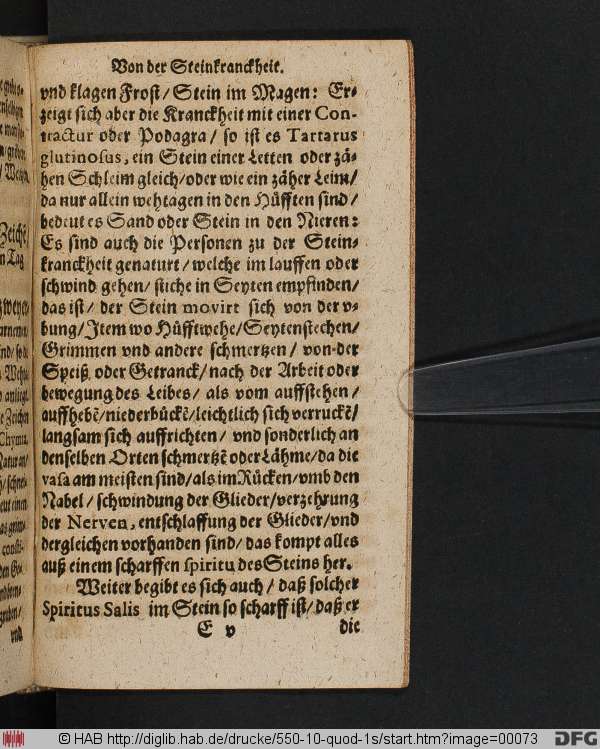 Von der Steinkranckheit.
vnd klagen Frost / Stein im Magen: Er-
zeigt sich aber die Kranckheit mit einer Con-
tractur oder Podagra / so ist es Tartarus
glutinosus, ein Stein einer Letten oder zä-
hen Schleim gleich / oder wie ein zäher Leim /
da nur allein wehtagen in den Hüfften sind /
bedeut es Sand oder Stein in den Nieren:
Es sind auch die Personen zu der Stein-
kranckheit genaturt / welche im lauffen oder
schwind gehen / stiche in Seyten empfinden /
das ist / der Stein movirt sich von der v-
bung / Item wo Hüfftwehe / Seytenstechen /
Grimmen vnd andere schmertzen / von der
Speiß oder Getranck / nach der Arbeit oder
bewegung des Leibes / als vom auffstehen /
auffhebẽ / niederbückẽ / leichtlich sich verruckẽ /
langsam sich auffrichten / vnd sonderlich an
denselben Orten schmertzẽ oder Lähme / da die
vasa am meisten sind / als im Rücken / vmb den
Nabel / schwindung der Glieder / verzehrung
der Nerven, entschlaffung der Glieder / vnd
dergleichen vorhanden sind / das kompt alles
auß einem scharffen spiritu des Steins her.
Weiter begibt es sich auch / daß solcher
Spiritus Salis im Stein so scharff ist / daß er
E v die
© HAB http://diglib.hab.de/drucke/550-10-quod-1s/start.htm?image=00073
DFG